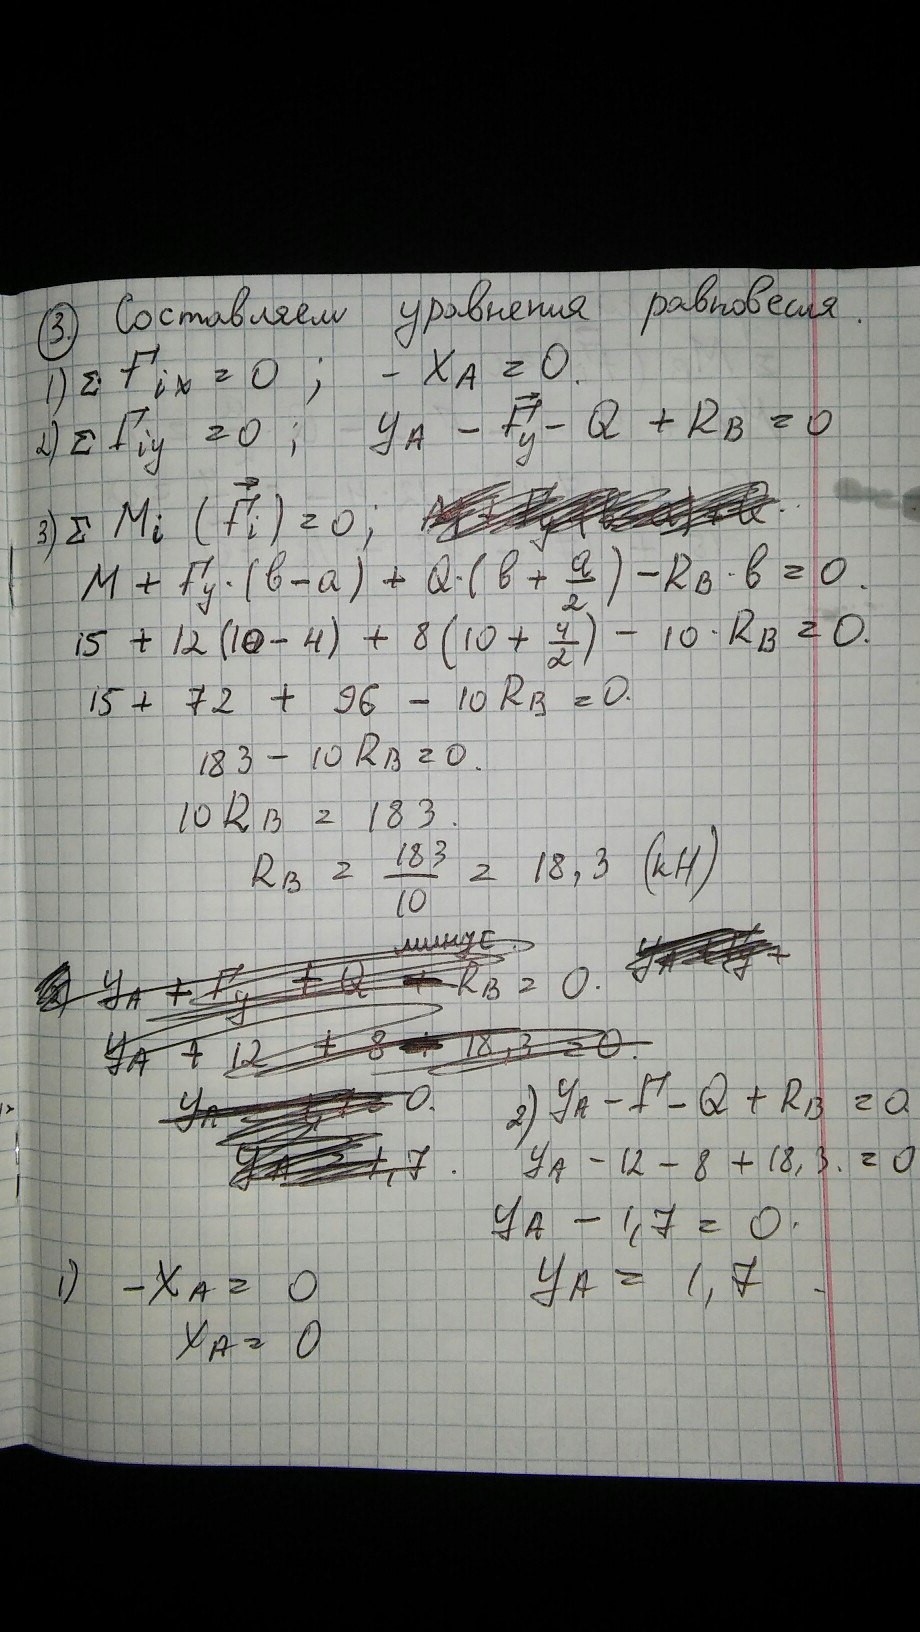 3. Составляем уравнения равновесия.
1) Σ Fix = 0 ; - XA = 0.
2) Σ Fiy = 0 ; YA - Fy - Q + RB = 0
3) Σ Mi (Fi) = 0 ;
M + Fy · (в - a) + Q · (в + a/2) - RB · в = 0.
15 + 12 (10 - 4) + 8 (10 + 4/2) - 10 · RB = 0.
15 + 72 + 96 - 10 RB = 0.
183 - 10 RB = 0.
10 RB = 183.
RB = 183/10 = 18,3 (кН)
минус
YA + Fy + Q - RB = 0.
YA + 12 + 8 - 18,3 = 0.
2) YA - F - Q + RB = 0
YA - 12 - 8 + 18,3. = 0
YA - 1,7 = 0.
YA = 1,7
1) - XA = 0
XA = 0